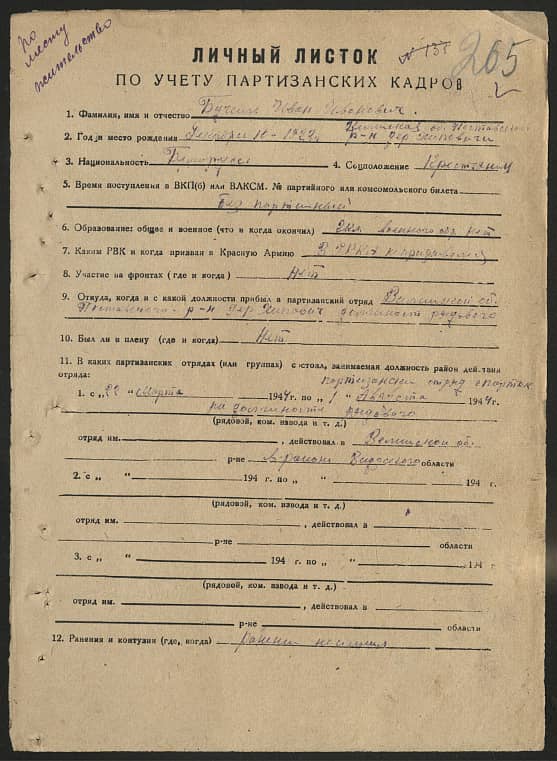 по
месту
жительство
№ 135
265
ЛИЧНЫЙ ЛИСТОК
ПО УЧЕТУ ПАРТИЗАНСКИХ КАДРОВ
1. Фамилия, имя и отчество Иван Иванович.
Вилейская об. Поставский
2. Год и место рождения 10 - 1922г р-н дер.
3. Национальность 4. Соцположение
5. Время поступления в ВКП(б) или ВЛКСМ. № партийного или комсомольского билета
Без партийный
6. Образование: общее и военное (что и когда окончил) военного обр. нет
7. Каким РВК и когда призван в Красную Армию В РККА
8. Участие на фронтах (где и когда) Нет
9. Откуда, когда и с какой должности прибыл в партизанский отряд Вилейской об.
Поставского р-н дер. рядового
10. Был ли в плену (где и когда) Нет
11. В каких партизанских отрядах (или группах) состоял, занимаемая должность район действия
отряда: партизански отряд спартак
1. с „22 “ марта 1944 г. по „ 1 “ Августа 1944 г.
на должности рядового
(рядовой, ком. взвода и т. д.)
отряд им. , действовал в Вилейской об.
р-не в районе области
2. с „ “ 194 г. по „ “ 194 г.
(рядовой, ком. взвода и т. д.)
отряд им. , действовал в
р-не области
3. с „ “ 194 г. по „ “ 194 г
(рядовой, ком. взвода и т. д.)
отряд им. , действовал в
р-не области
12. Ранения и контузии (где, когда)